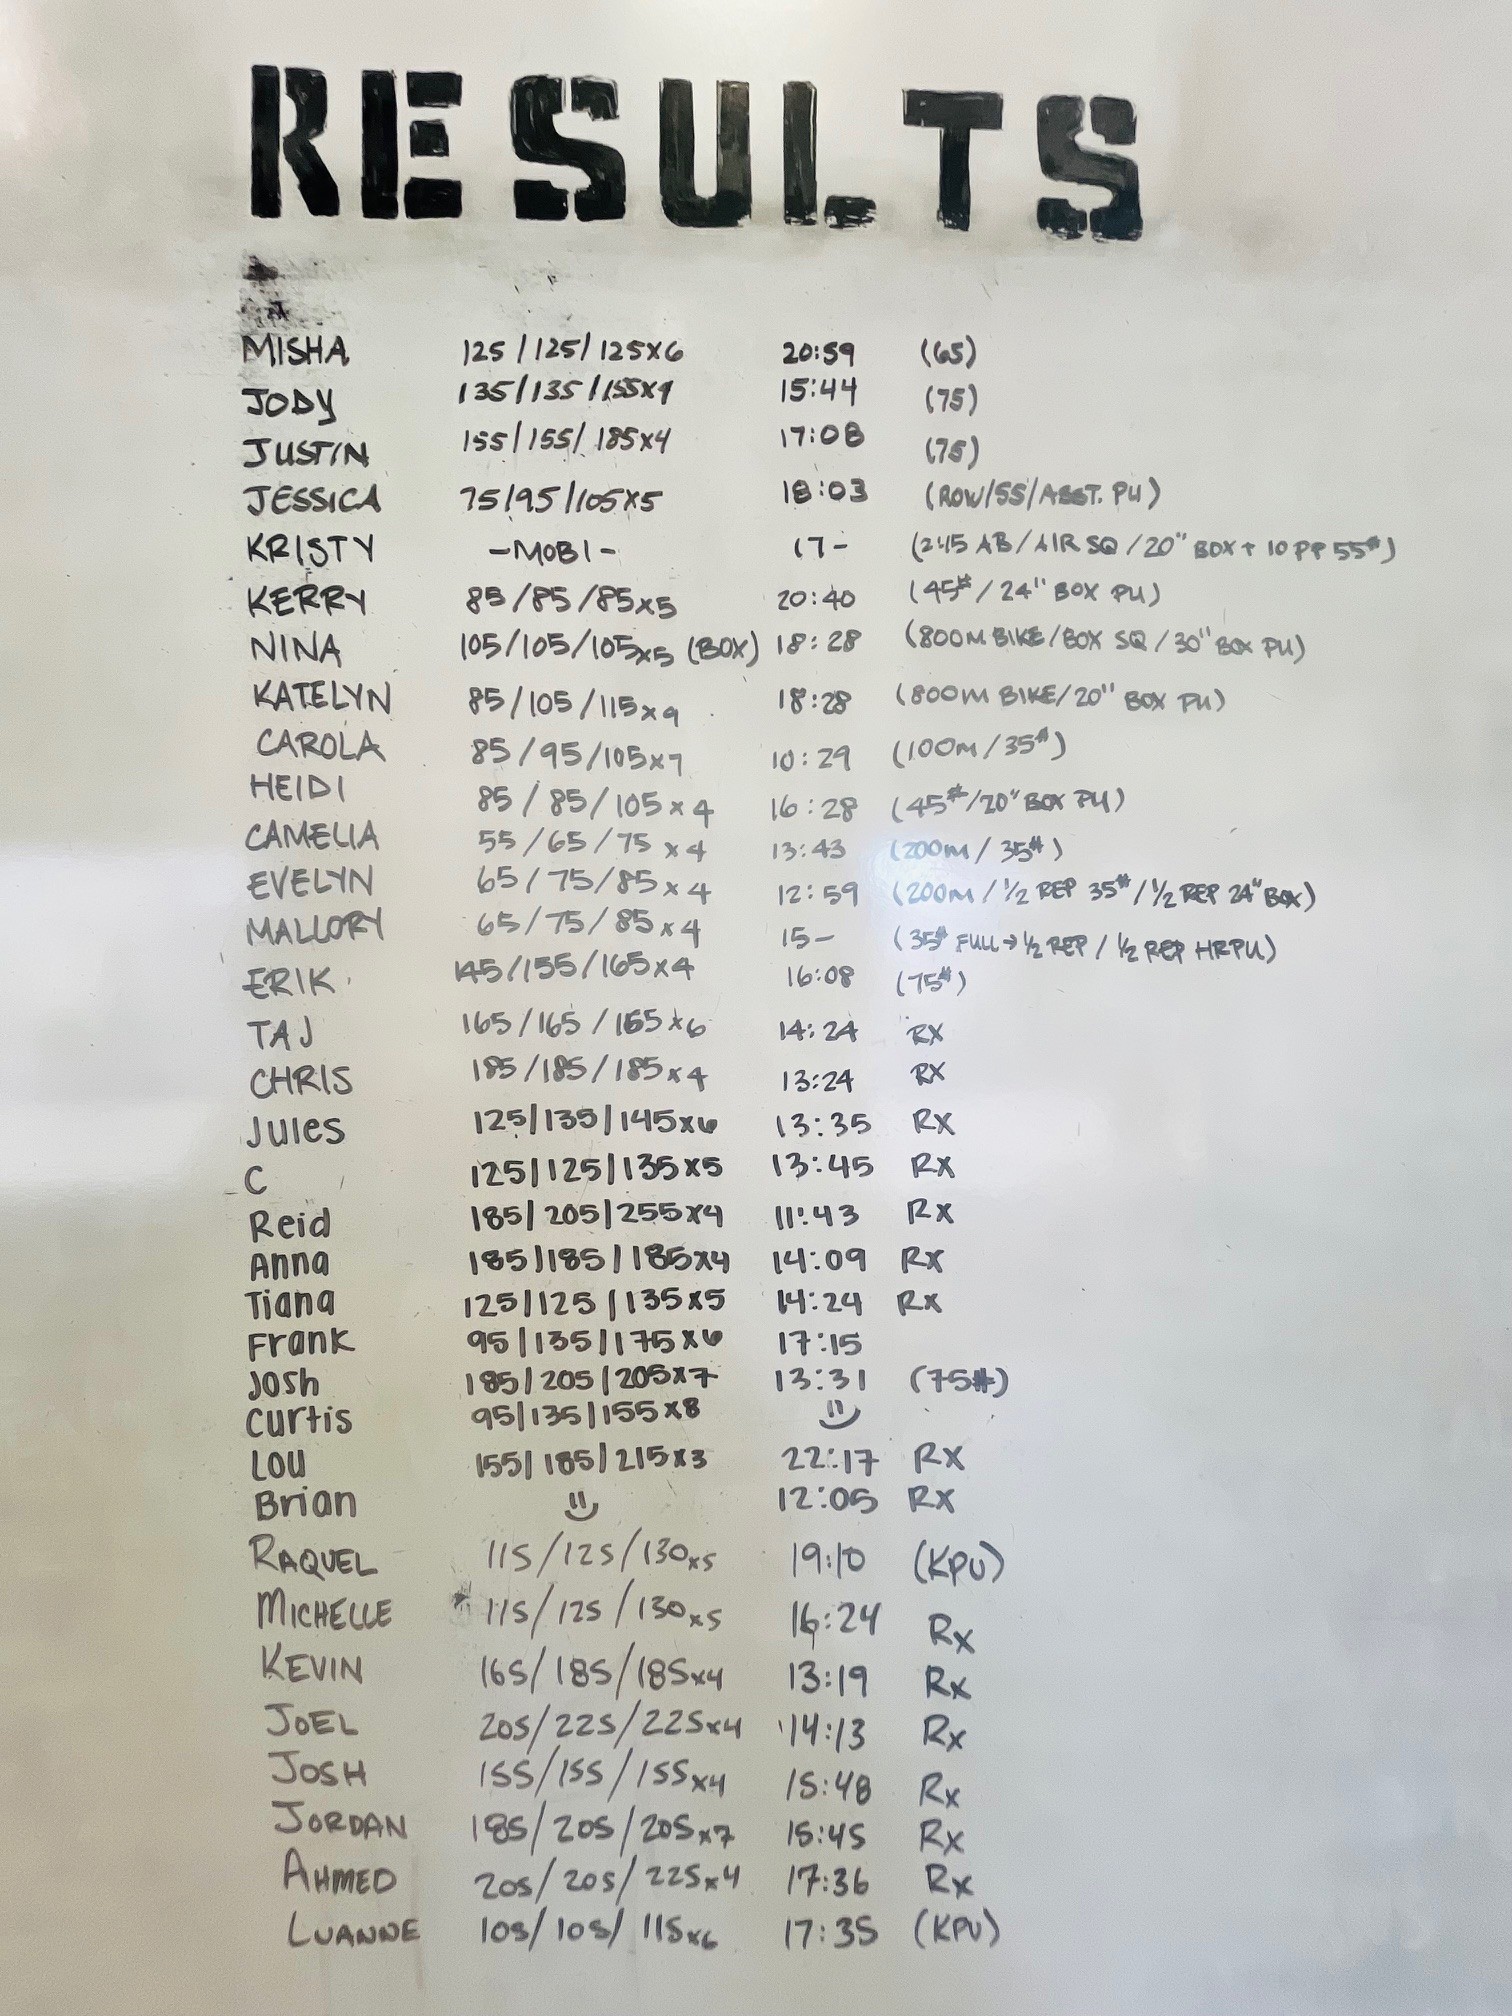 RESULTS
MISHA 125/125/125x6 20:59 (65)
JODY 135/135/155x9 15:44 (75)
JUSTIN 155/155/185x4 17:08 (75)
JESSICA 75/95/105x5 18:03 (ROW/55/ASST. PU)
KRISTY -MOBI- 17- (2:15 AB/AIR SQ/20" BOX + 10 PP 55#)
KERRY 85/85/85x5 20:40 (45#/24" BOX PU)
NINA 105/105/105x5 (BOX) 18:28 (800M BIKE/BOX SQ/30" BOX PU)
KATELYN 85/105/115x9 18:28 (800M BIKE/20" BOX PU)
CAROLA 85/95/105x7 10:29 (100M/35#)
HEIDI 85/85/105x4 16:28 (45#/20" BOX PU)
CAMELIA 55/65/75x4 13:43 (200M/35#)
EVELYN 65/75/85x4 12:59 (200M/1/2 REP 35#/1/2 REP 24" BOX)
MALLORY 65/75/85x4 15- (35# FULL→1/2 REP/1/2 REP HRPU)
ERIK 145/155/165x4 16:08 (75#)
TAJ 165/165/165x6 14:24 RX
CHRIS 185/185/185x4 13:24 RX
Jules 125/135/145x6 13:35 RX
C 125/125/135x5 13:45 RX
Reid 185/205/255x4 11:43 RX
Anna 185/185/185x4 14:09 RX
Tiana 125/125/135x5 14:24 RX
Frank 95/135/175x6 17:15
Josh 185/205/205x7 13:31 (75#)
Curtis 95/135/155x8
Lou 155/185/215x3 22:17 RX
Brian 12:05 RX
RAQUEL 115/125/130x5 19:10 (KPU)
MICHELLE 115/125/130x5 16:24 Rx
KEVIN 165/185/185x4 13:19 Rx
JOEL 205/225/225x4 14:13 Rx
JOSH 155/155/155x4 15:48 Rx
JORDAN 185/205/205x7 15:45 Rx
AHMED 205/205/225x4 17:36 Rx
LUANNE 105/105/115x6 17:35 (KPU)